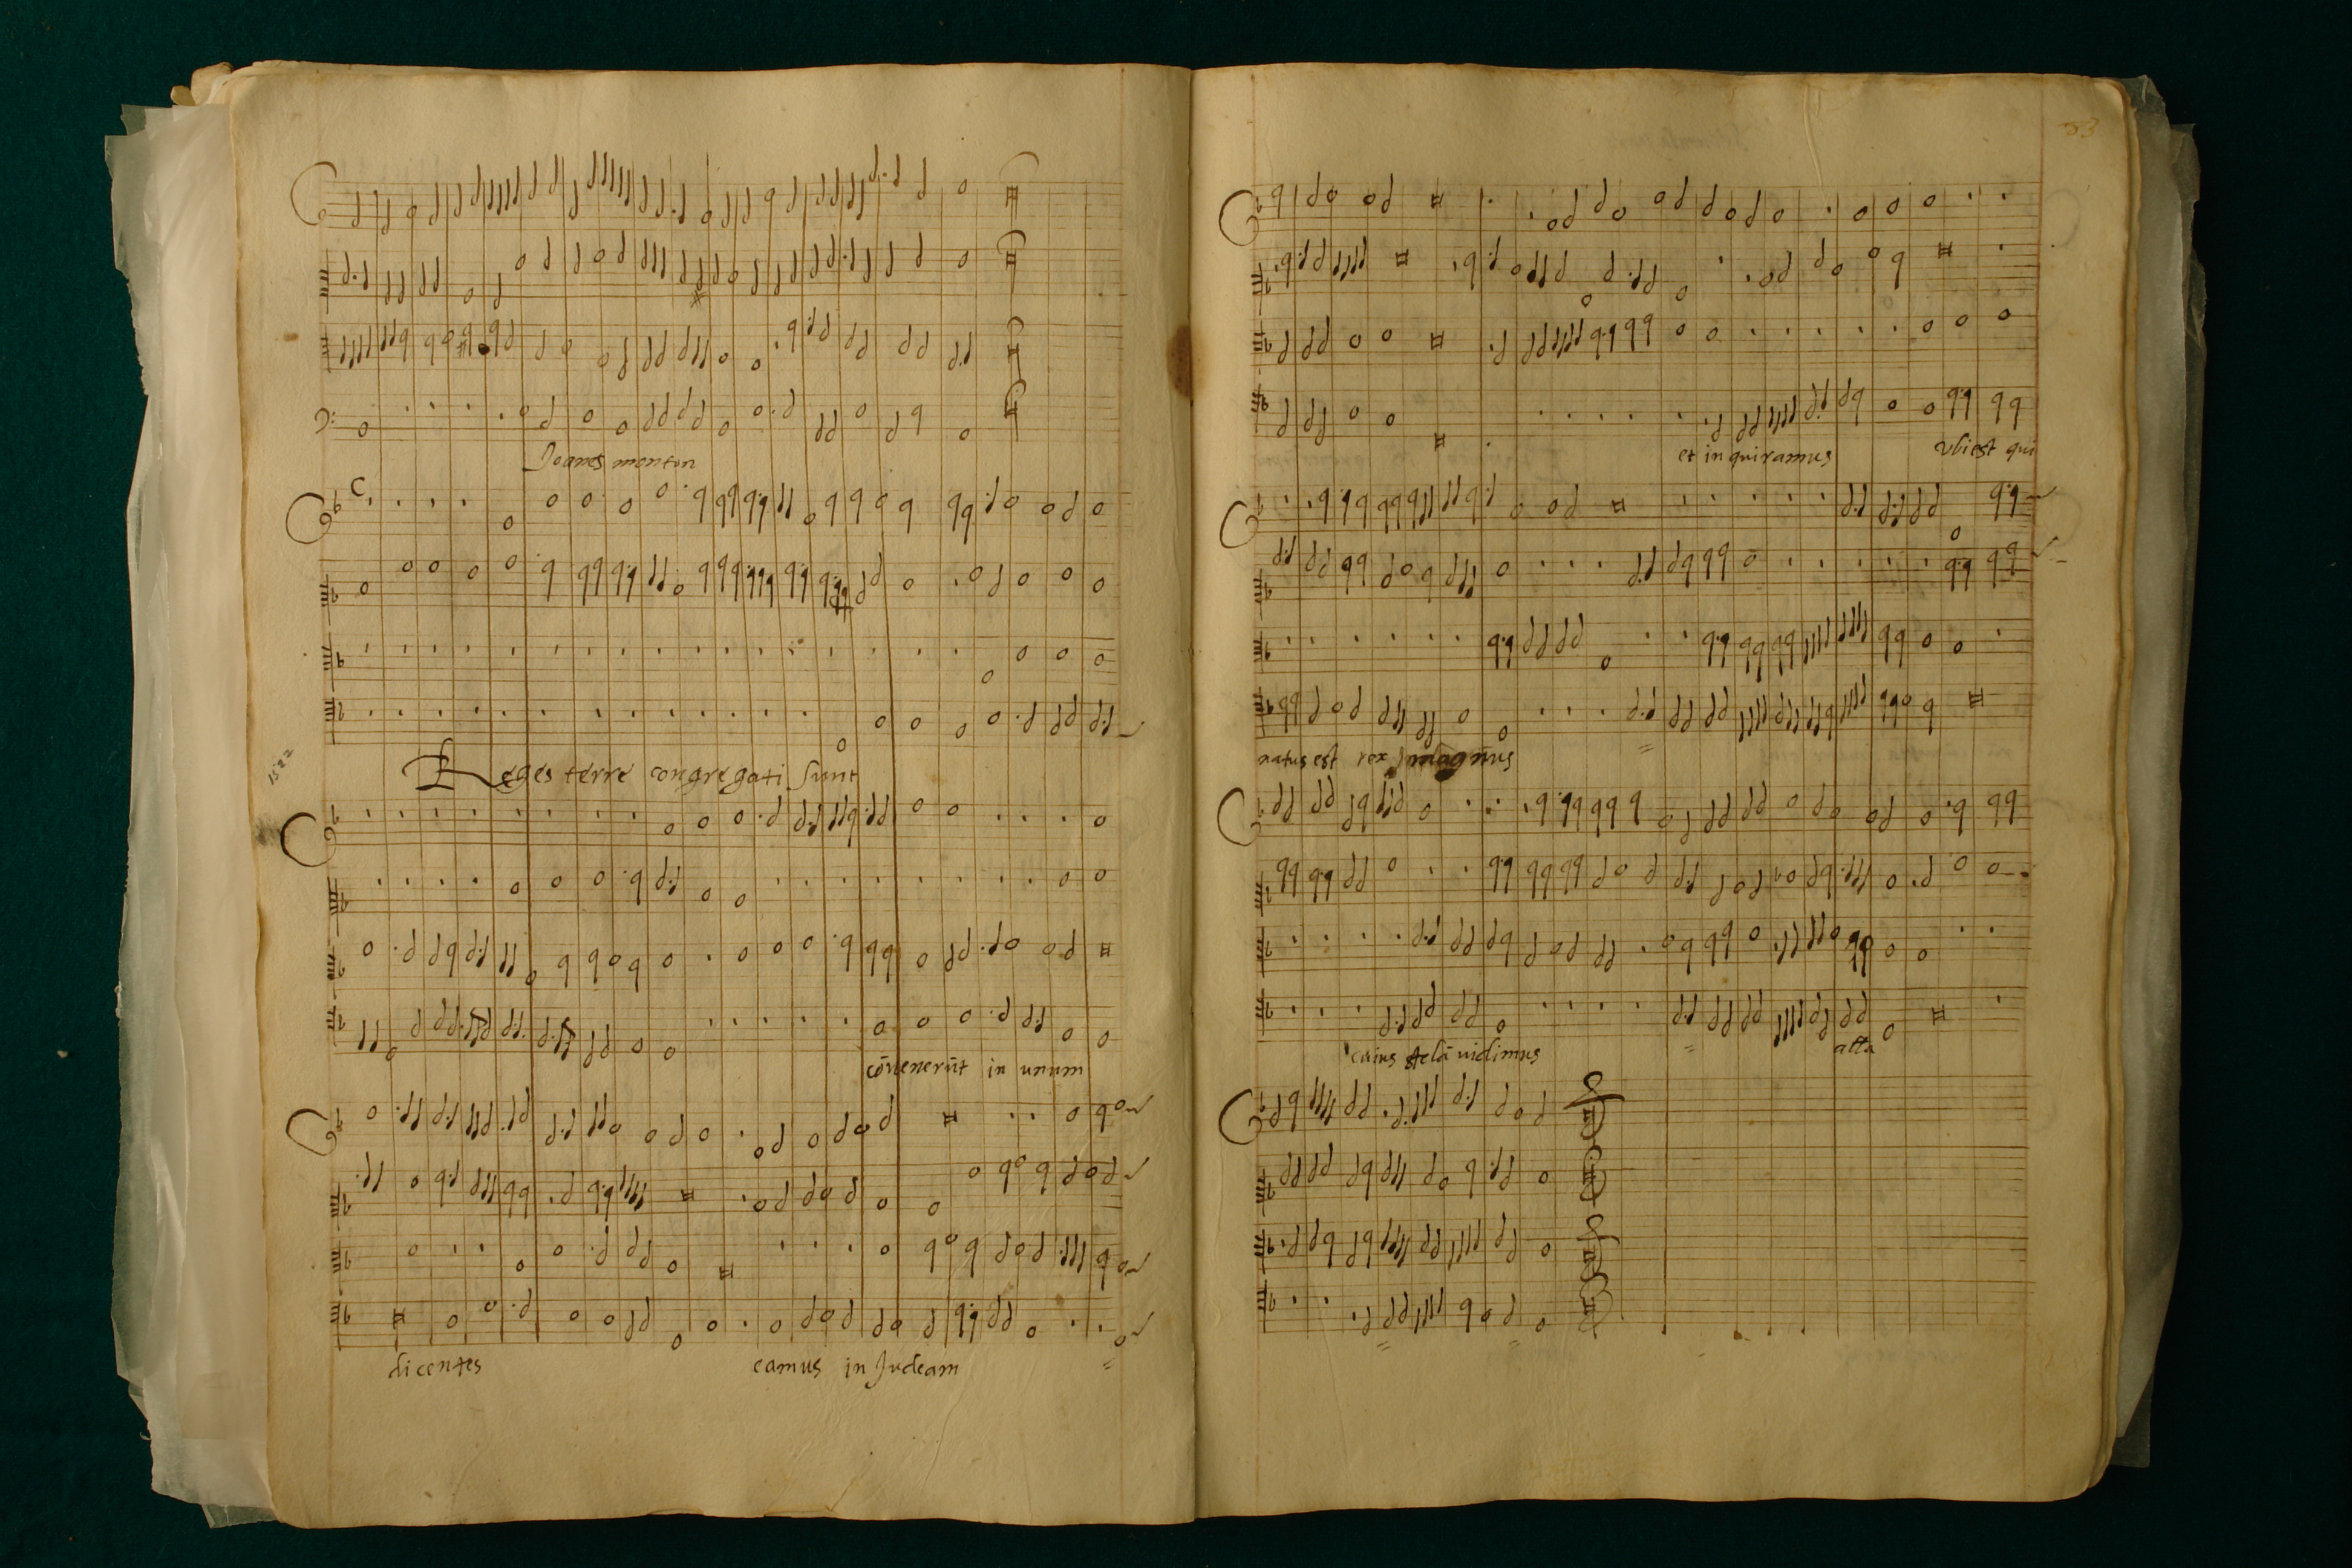 Joanes monton
Reges terre congregati sunt
1522
cōvenerūt in unum
dicentes eamus in Judeam
83
et inquiramus ubi est qui
natus est rex magnus
cuius stelā vidimus
alta